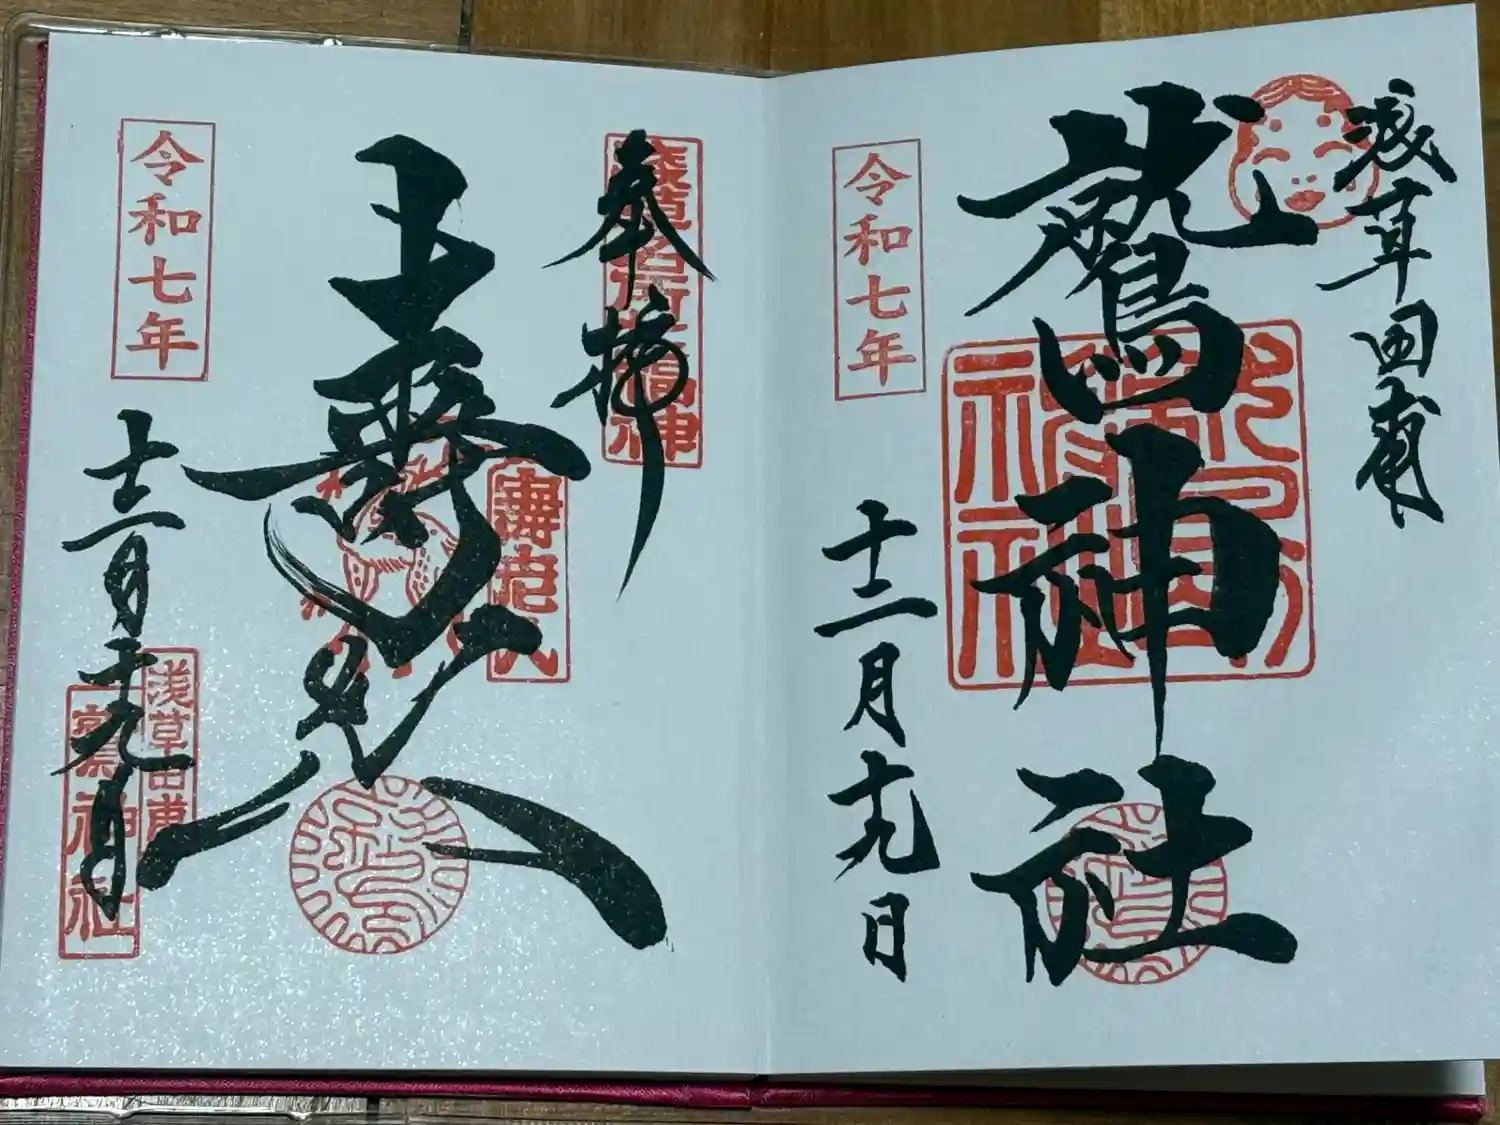 浅草田甫
鷲神社
令和七年
十二月十九日
奉拝
浅草名所七福神
壽老人
壽老人
令和七年
十二月十九日
浅草田甫
鷲神社